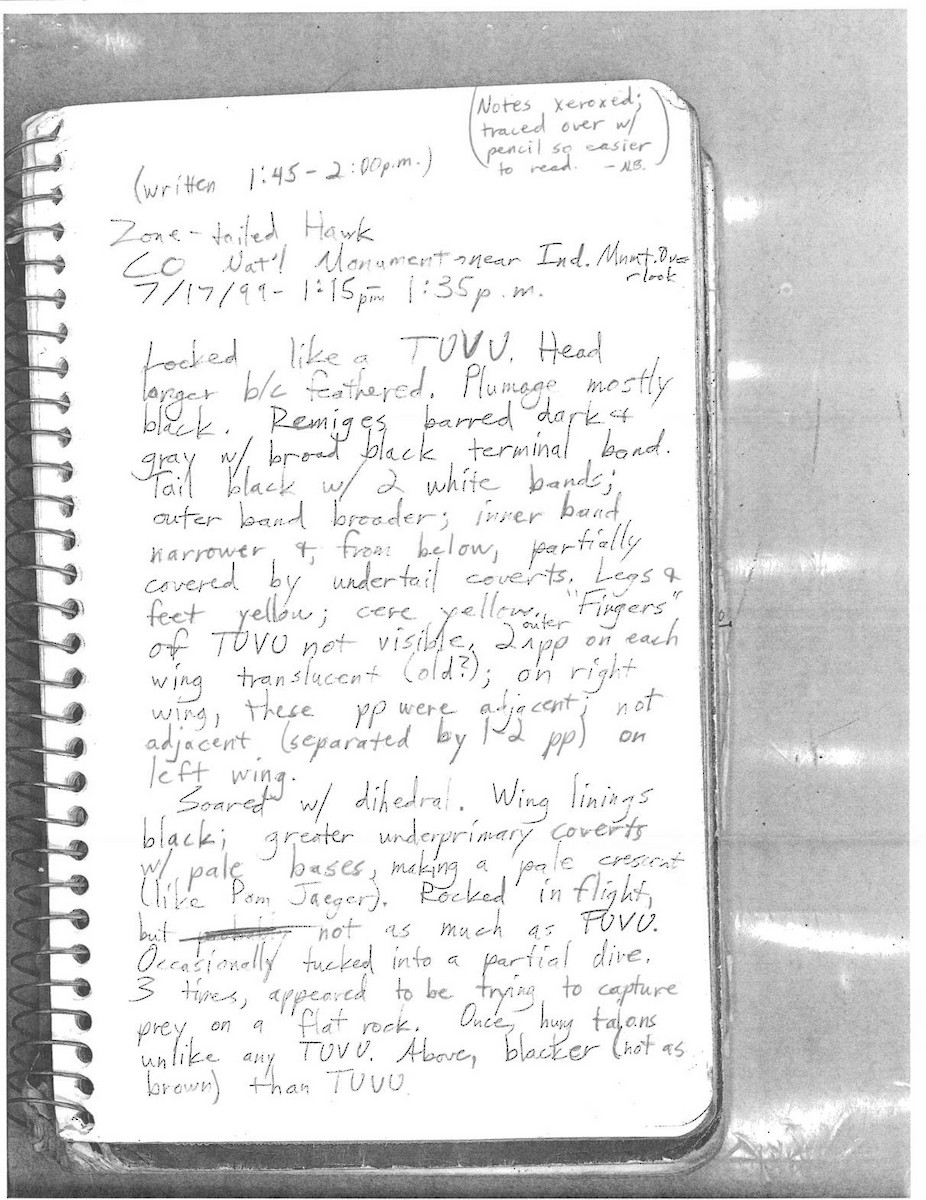 (Notes xeroxed;
traced over w/
pencil so easier
to read. - NB.)
(written 1:45 - 2:00p.m.)
Zone-tailed Hawk
CO Nat'l Monument - near Ind. Mnmt. Over
look
7/17/99 - 1:15pm - 1:35p.m.
Looked like a TUVU. Head
larger b/c feathered. Plumage mostly
black. Remiges barred dark &
gray w/ broad black terminal band.
Tail black w/ 2 white bands;
outer band broader; inner band
narrower &, from below, partially
covered by undertail coverts. Legs &
feet yellow; cere yellow. "Fingers"
of TUVU not visible. 2 outer pp on each
wing translucent (old?); on right
wing, these pp were adjacent; not
adjacent (separated by 1-2 pp) on
left wing.
Soared w/ dihedral. Wing linings
black; greater underprimary coverts
w/ pale bases, making a pale crescent
(like Pom Jaeger). Rocked in flight,
but not as much as TUVU.
Occasionally tucked into a partial dive.
3 times, appeared to be trying to capture
prey on a flat rock. Once, hung talons
unlike any TUVU. Above, blacker (not as
brown) than TUVU